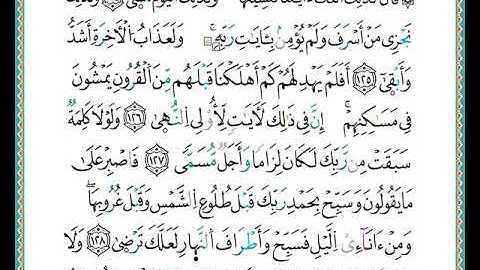 نَجْزِى مَنْ أَسْرَفَ وَلَمْ يُؤْمِنۢ بِـَٔايَٰتِ رَبِّهِۦ وَلَعَذَابُ ٱلْأَخِرَةِ أَشَدُّ
وَأَبْقَىٰٓ ١٢٥ أَفَلَمْ يَهْدِ لَهُمْ كَمْ أَهْلَكْنَا قَبْلَهُم مِّنَ ٱلْقُرُونِ يَمْشُونَ
فِى مَسَٰكِنِهِمْ إِنَّ فِى ذَٰلِكَ لَأَيَٰتٍ لِّأُو۟لِى ٱلنُّهَىٰ ١٢٦ وَلَوْلَا كَلِمَةٌ
سَبَقَتْ مِن رَّبِّكَ لَكَانَ لِزَامًا وَأَجَلٌ مُّسَمًّى ١٢٧ فَٱصْبِرْ عَلَىٰ
مَا يَقُولُونَ وَسَبِّحْ بِحَمْدِ رَبِّكَ قَبْلَ طُلُوعِ ٱلشَّمْسِ وَقَبْلَ غُرُوبِهَا
وَمِنْ ءَانَآئِ ٱلَّيْلِ فَسَبِّحْ وَأَطْرَافَ ٱلنَّهَارِ لَعَلَّكَ تَرْضَىٰ ١٢٨ وَلَا